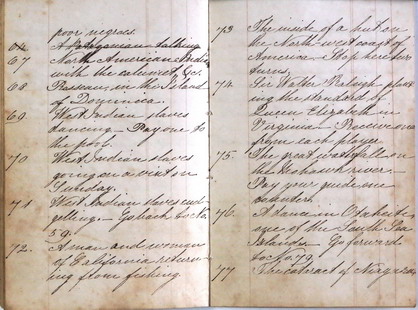 poor negroes.
64 A Patagonian talking
67 North American Indian
with the calumet &c.
68 Possess, in the Island
of Dominica.
69. West Indian slaves
dancing — Pay one to
the pool.
70 West Indian slaves
going on a visit on
Sunday.
71 West Indian slaves cud-
gelling — Go back to No.
59.
72. A man and woman
of California return-
ing from fishing.
73 The inside of a hut on
the North-west coast of
America — Stop here four
turns.
74. Sir Walter Raleigh plant-
ing the standard of
Queen Elizabeth in
Virginia — Receive one
from each player
75. The great waterfall on
the Mohawk river. —
Pay your guide one
counter.
76. A dance in Otaheite
one of the South Sea
Islands — Go forward
to No. 79.
77 The cataract of Niagara